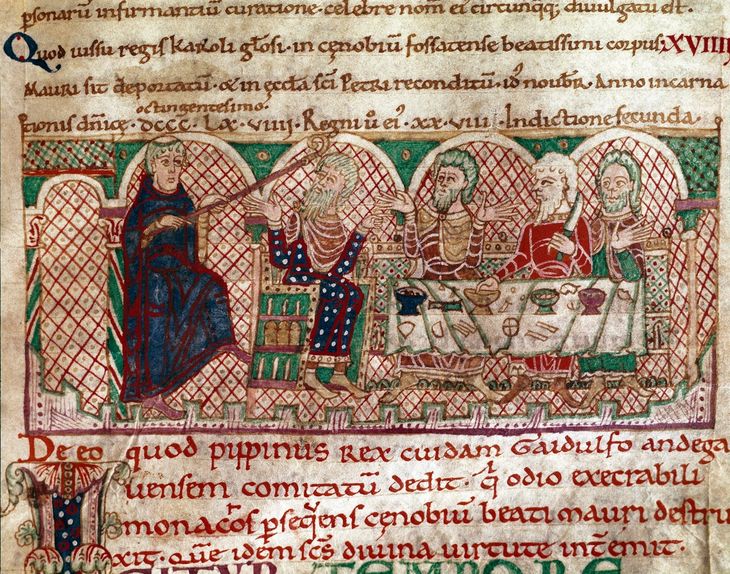 psonarū infirmantiū curatione· celebre nom̄ ei circūnq̄q; divulgatū est·
Quod iussu regis karoli gl̄osi· in cęnobiū fossatense beatissimi corpus XVIIII
Mauri sit deportatū· & in ecclā sc̄i Petri reconditū· id' novēbr· Anno incarna
octingentesimo
tionis dn̄icę· DCCC· LX· VIIII· Regni ū ei' XX· VIII· Indictione secunda·
De eo quod pippinus rex cuidam Gaidulfo andega
vensem comitatū dedit· q̄ odio execrabili
monachos p̄seq̄ens cęnobiū beati mauri destru
xit· quē idem sc̄s divina virtute intemit·
TEMPORE